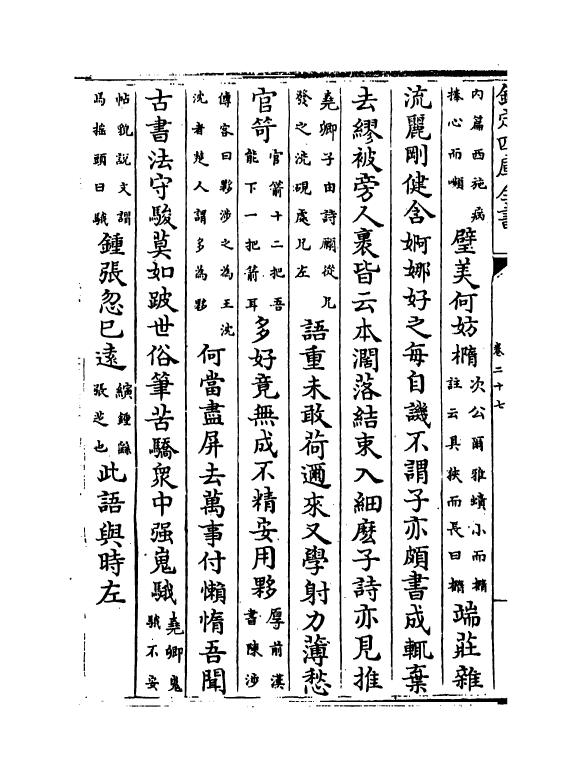 欽定四庫全書
卷二十七
内篇西施病捧心而矉璧美何妨橢次公爾雅蟦小而橢註云具狹而長曰橢端莊雜
流麗剛健含婀娜好之毎自譏不謂子亦頗書成輒棄
去繆被旁人裹皆云本濶落結束入細麽子詩亦見推
堯卿子由詩願從兄發之洗硯處兄左語重未敢荷邇來又學射力薄愁
官笴官箭十二把吾能下一把箭耳多好竟無成不精安用夥厚前漢書陳涉
傳客曰夥涉之為王沈沈者楚人謂多為夥何當盡屏去萬事付懶惰吾聞
古書法守駿莫如跛世俗筆苦驕衆中强嵬騀堯卿嵬騀不安
帖説文謂馬搖頭曰騀鍾張忽已遠縯鍾繇張芝也此語與時左